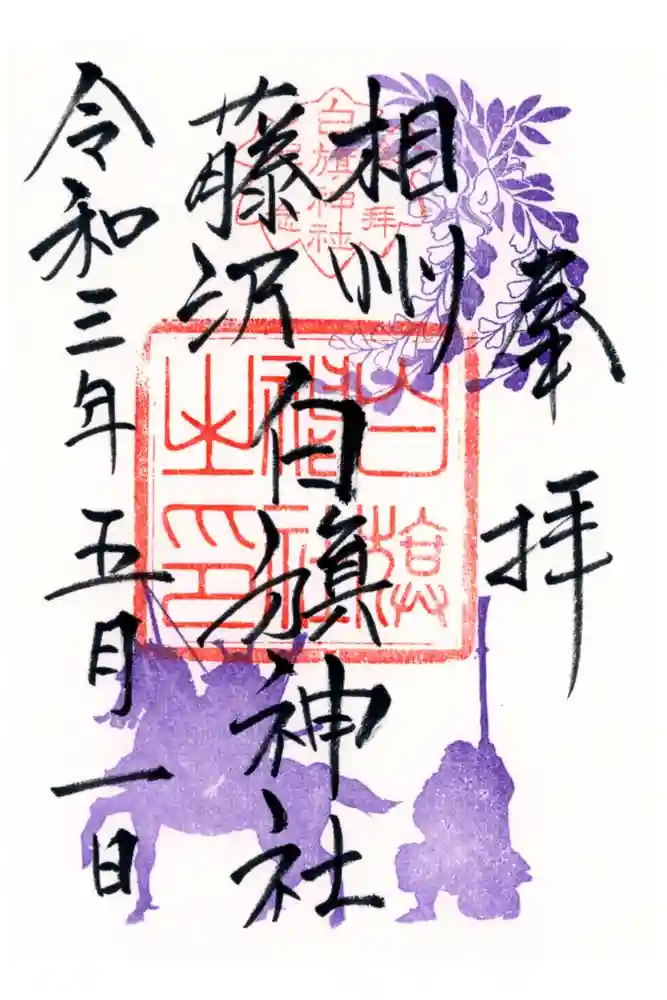 奉拝
相州
藤沢
白旗神社
白旗神社之印
白旗神社
拝
令和三年五月一日